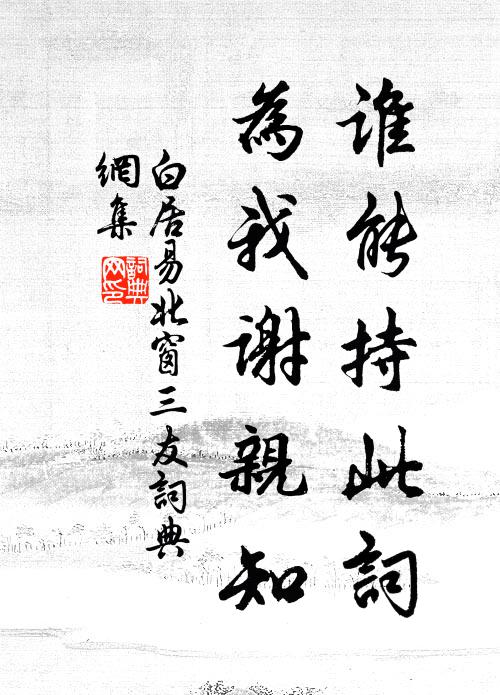 谁能持此詞
為我谢親知
白居易北窗三友詞典
網集
詞典
网印